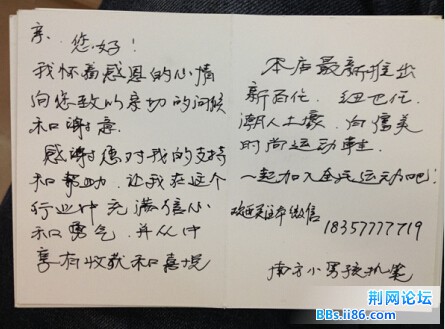 亲、您好！
我怀着感恩的心情
向您致以亲切的问候
和谢意.
感谢您对我的支持
和帮助，让我在这个
行业中充满信心
和勇气，并从中
享有收获和喜悦
本店最新推出
新百伦.
潮人土豪.
时尚运动鞋.
一起加入全民运动吧！
欢迎关注本微信
18357777719
南方小男孩执笔
荆网论坛
BBs.ii86.com